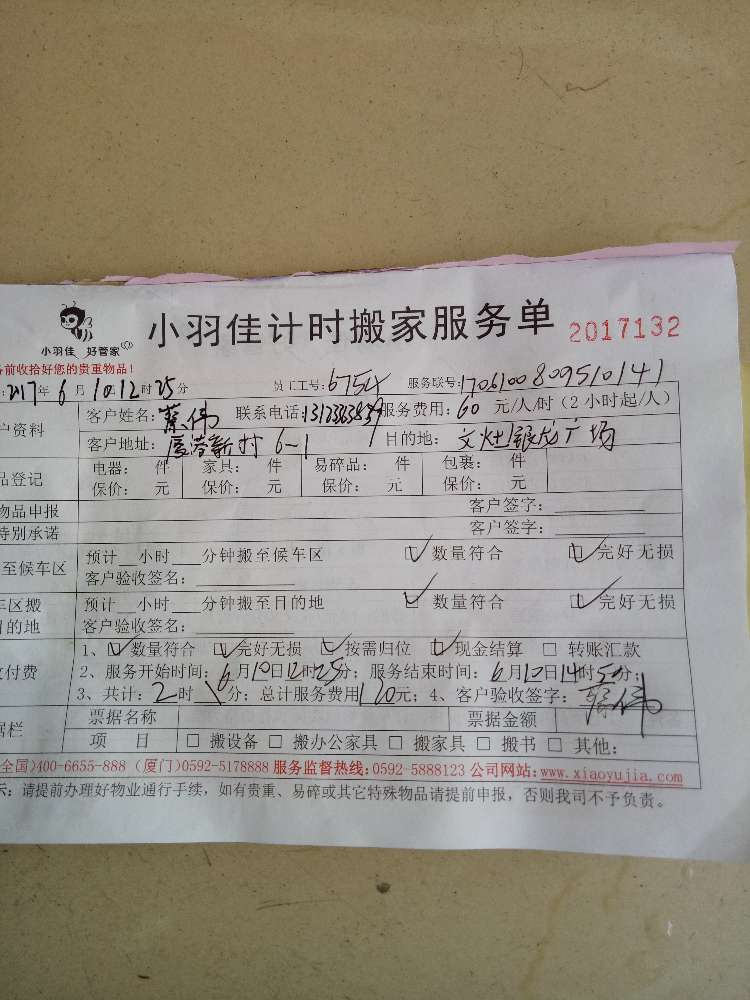 小羽佳计时搬家服务单 2017132
小羽佳 好管家
前收拾好您的贵重物品!
2017年6月10 12时25分 员工工号:6754 服务联号:1706100809510141
户资料 客户姓名:蔡伟 联系电话: 服务费用:60元/人/时(2小时起/人)
客户地址: 新村6-1 目的地:文灶银龙广场
品登记 电器: 件 家具: 件 易碎品: 件 包裹: 件
保价: 元 保价: 元 保价: 元 保价: 元
物品申报 客户签字:
特别承诺 客户签字:
至候车区 预计 小时 分钟搬至候车区 ☑数量符合 ☑完好无损
客户验收签名:
区搬 预计 小时 分钟搬至目的地 ☑数量符合 ☑完好无损
目的地 客户验收签名:
付费 1、☑数量符合 ☑完好无损 ☑按需归位 ☑现金结算 □转账汇款
2、服务开始时间:6月10日12时25分;服务结束时间:6月10日14时5分;
3、共计:2时\分;总计服务费用120元;4、客户验收签字:蔡伟
据栏 票据名称 票据金额
项 目 □搬设备 □搬办公家具 □搬家具 □搬书 □其他:
全国)400-6655-888 (厦门)0592-5178888 服务监督热线:0592-5888123 公司网站:www.xiaoyujia.com
示:请提前办理好物业通行手续,如有贵重、易碎或其它特殊物品请提前申报,否则我司不予负责。